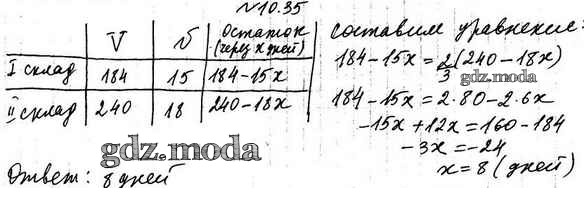 №10.35
V | v | Остаток (через x дней)
I склад | 184 | 15 | 184-15x
II склад | 240 | 18 | 240-18x
Ответ: 8 дней
gdz.moda
Составим уравнение:
184-15x = 2/3 (240-18x)
gdz.moda
184-15x = 2·80-2·6x
-15x+12x = 160-184
-3x = -24
x = 8 (дней)